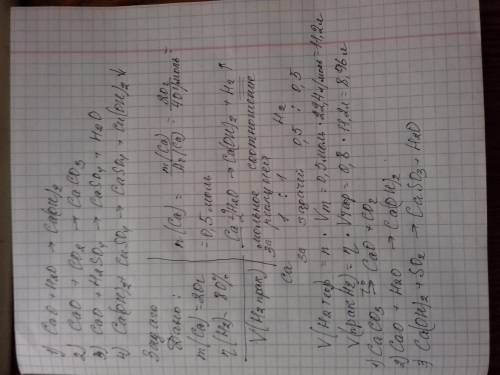 1) CaO + H2O → Ca(OH)2
2) CaO + CO2 → CaCO3
3) CaO + H2SO4 → CaSO4 + H2O
4) Ca(OH)2 + CaSO4 → CaSO4 + Ca(OH)2↓
Задача
Дано:
m(Ca)=20г
η(H2)- 80%
V(H2 прак)
n(Ca) = m(Ca)/Ar(Ca) = 20г/40г/моль =
=0,5моль
Ca+2H2O → Ca(OH)2 + H2↑
мольное соотношение
за реакцией H2
Ca 1 : 1
за задачей 0,5 : 0,5
V(H2тар) = n · Vm = 0,5моль · 22,4л/моль=11,2л
V(прак H2)= η · Vтар = 0,8 · 11,2л = 8,96л
1) CaCO3 t°→ CaO + CO2
2) CaO + H2O → Ca(OH)2
3) Ca(OH)2 + SO2 → CaSO3 + H2O